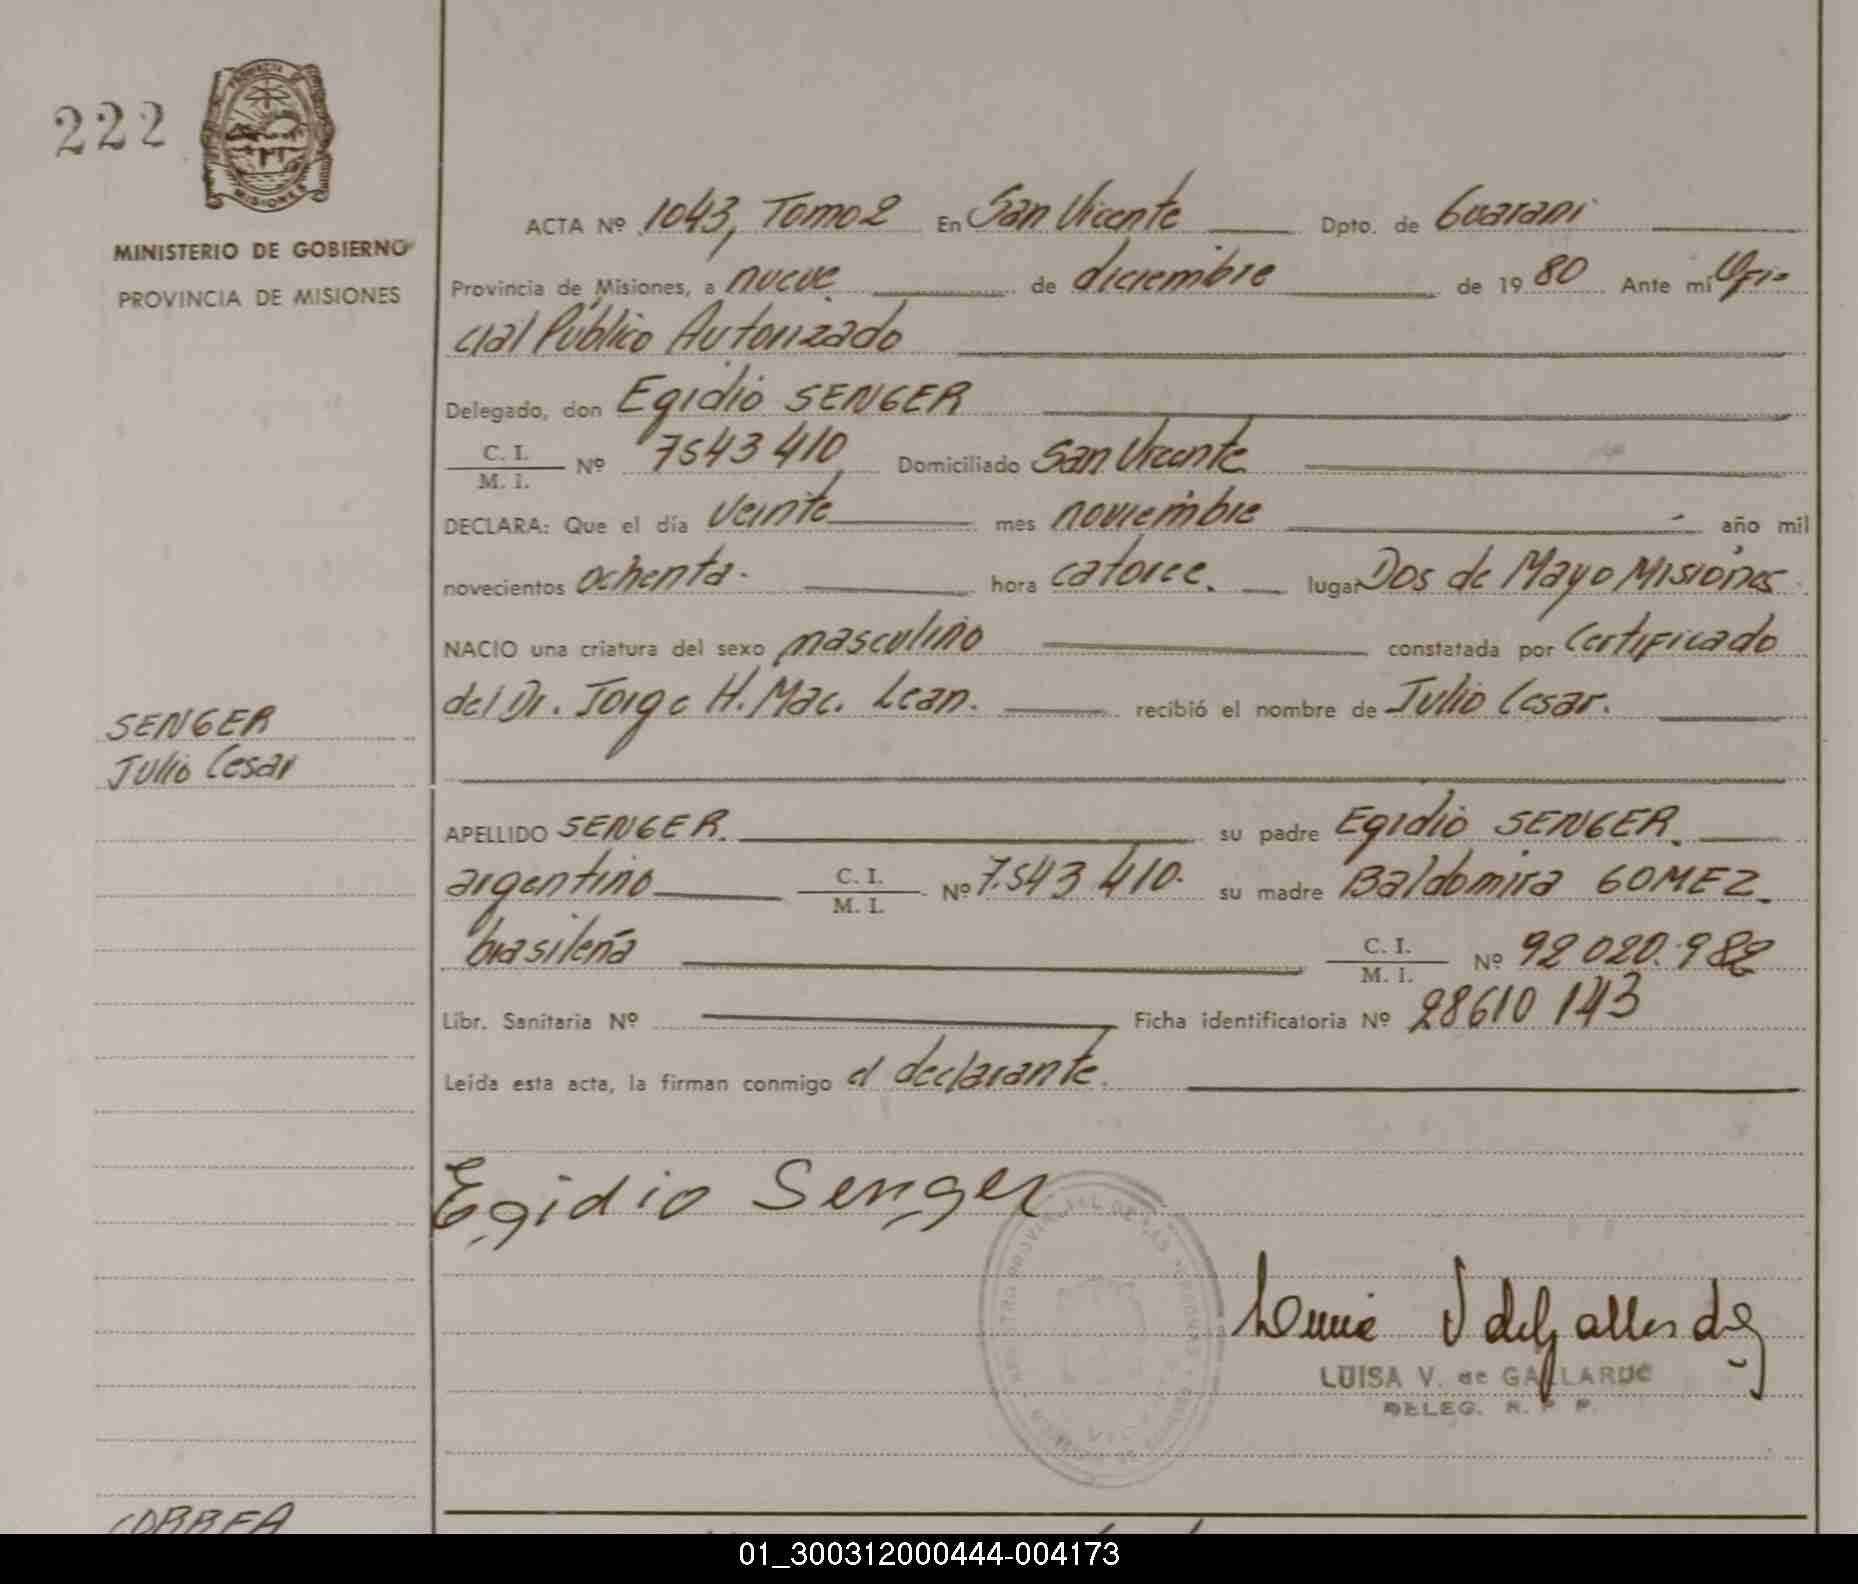 222
PROVINCIA DE
MISIONES
MINISTERIO DE GOBIERNO
PROVINCIA DE MISIONES
ACTA Nº 1043, Tomo 2 En San Vicente Dpto. de Guarani
Provincia de Misiones, a nueve de diciembre de 1980 Ante mi Ofi-
cial Público Autorizado
Delegado, don Egidio SENGER
C. I.
M. I. Nº 7543 410 Domiciliado San Vicente
DECLARA: Que el día veinte mes noviembre año mil
novecientos ochenta. hora catorce. lugar Dos de Mayo Misiones.
NACIO una criatura del sexo masculino constatada por Certificado
del Dr. Jorge H. Mac. Lean. recibió el nombre de Julio Cesar.
SENGER
Julio Cesar
APELLIDO SENGER. su padre Egidio SENGER.
argentino C. I.
M. I. Nº 7.543 410. su madre Baldomira GOMEZ
brasileña C. I.
M. I. Nº 92 020.982
Libr. Sanitaria Nº Ficha identificatoria Nº 28610 143
Leída esta acta, la firman conmigo el declarante.
Egidio Senger
LUISA V. de GALLARDO
DELEG. R. P. P.
CORREA
01_300312000444-004173